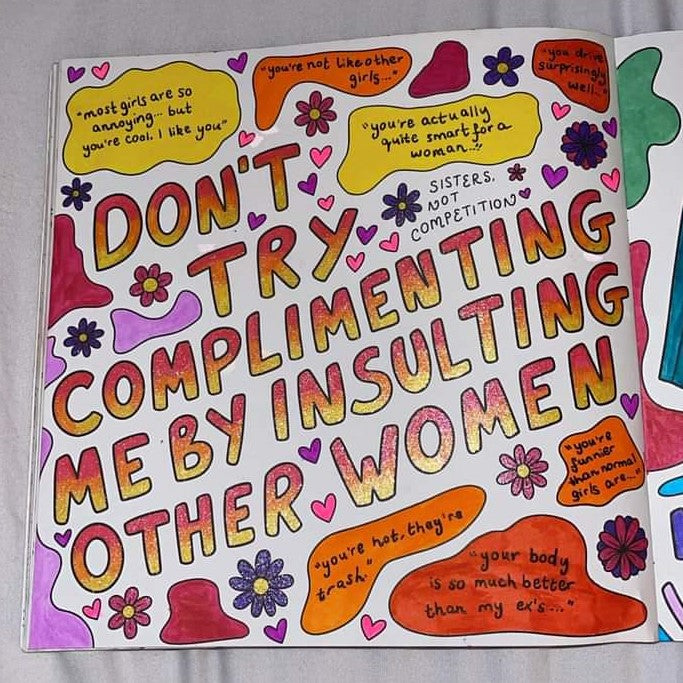 "most girls are so
annoying... but
you're cool. I like you"
"you're not like other
girls..."
"you drive
surprisingly
well..."
"you're actually
quite smart for a
woman..."
SISTERS,
NOT
COMPETITION
DON'T
TRY
COMPLIMENTING
ME BY INSULTING
OTHER WOMEN
"you're
funnier
than normal
girls are..."
"you're hot, they're
trash."
"your body
is so much better
than my ex's..."